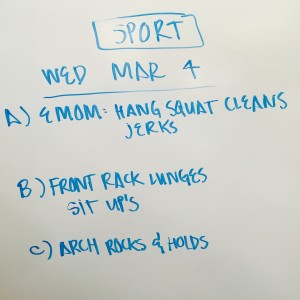 SPORT
WED MAR 4
A) EMOM: HANG SQUAT CLEANS
JERKS
B) FRONT RACK LUNGES
SIT UP'S
C) ARCH ROCKS & HOLDS